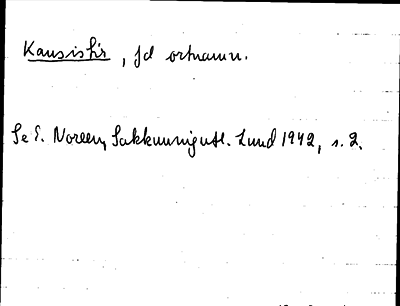 Kausishir, fd ortnamn.
Se E. Noreen, Sakkunnigutl. Lund 1942, s. 2.